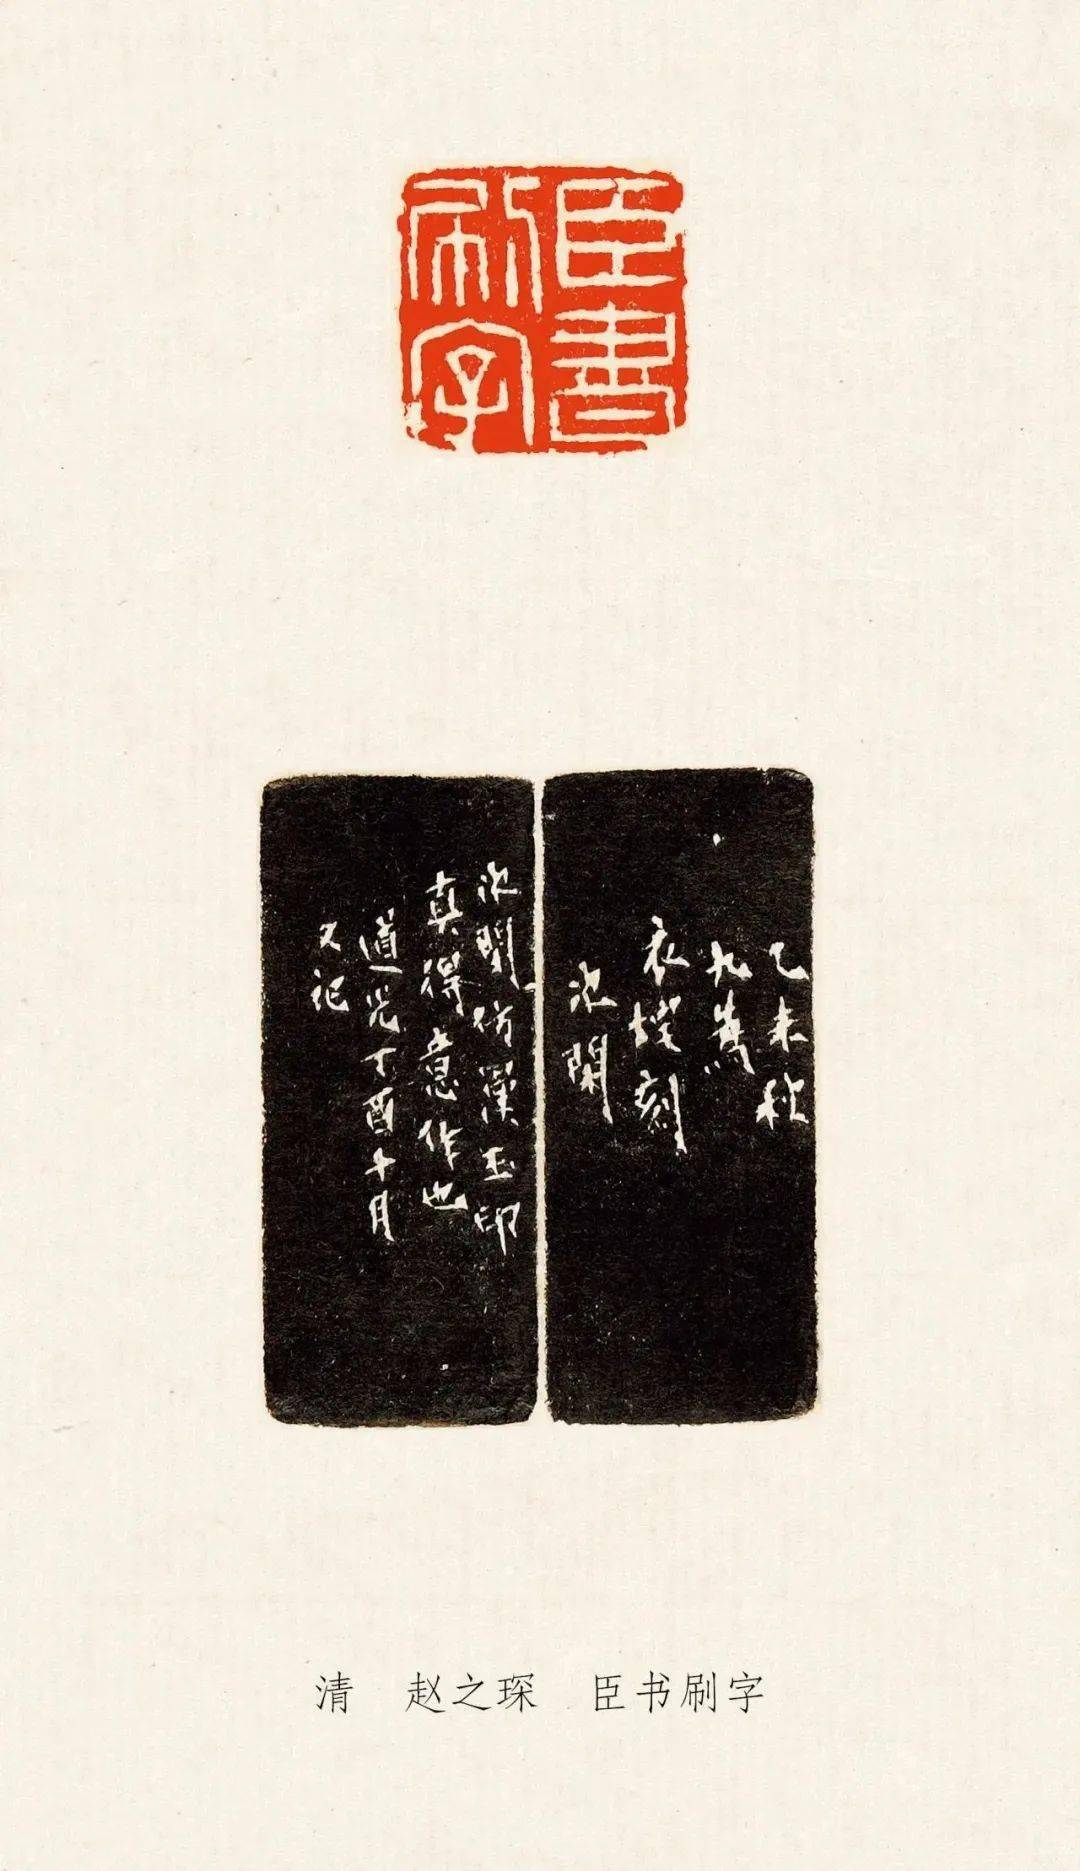 臣書
刷字
乙未秋
九為
衣 刻
次閑
次閑仿漢玉印
真得意作也
道光丁酉十月
又記
清 赵之琛 臣书刷字